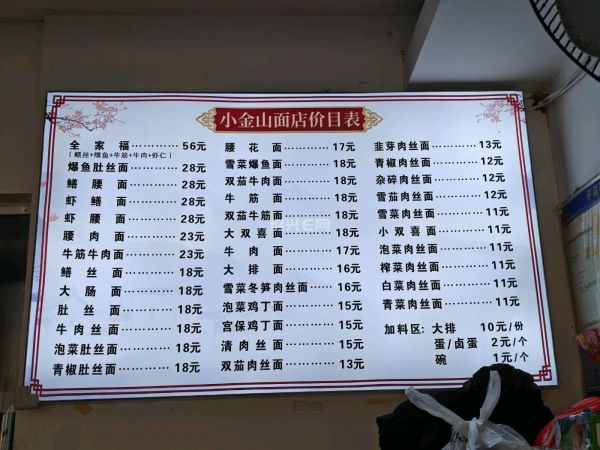 小金山面店价目表
全家福············56元
(鳝丝+爆鱼+牛筋+牛肉+虾仁)
爆鱼肚丝面············28元
鳝腰面············28元
虾鳝面············28元
虾腰面············28元
腰肉面············23元
牛筋牛肉面············23元
鳝丝面············18元
大肠面············18元
肚丝面············18元
牛肉丝面············18元
泡菜肚丝面············18元
青椒肚丝面············18元
腰花面············17元
雪菜爆鱼面············18元
双茄牛肉面············18元
牛筋面············18元
双茄牛筋面············18元
大双喜面············18元
牛肉面············17元
大排面············16元
雪菜冬笋肉丝面············16元
泡菜鸡丁面············15元
宫保鸡丁面············15元
清肉丝面············15元
双茄肉丝面············13元
韭芽肉丝面············13元
青椒肉丝面············12元
杂碎肉丝面············12元
雪茄肉丝面············12元
雪菜肉丝面············11元
小双喜面············11元
泡菜肉丝面············11元
榨菜肉丝面············11元
白菜肉丝面············11元
青菜肉丝面············11元
加料区: 大排 10元/份
蛋/卤蛋 2元/个
碗 1元/个